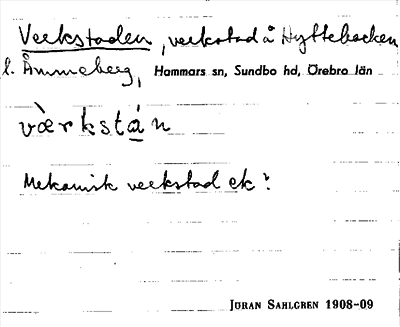 Verkstaden, verkstad å Hyttebacken
l. Åmmeberg, Hammars sn, Sundbo hd, Örebro län
væ̀rkstá̲n
Mekanisk verkstad etc.
JÖRAN SAHLGREN 1908-09